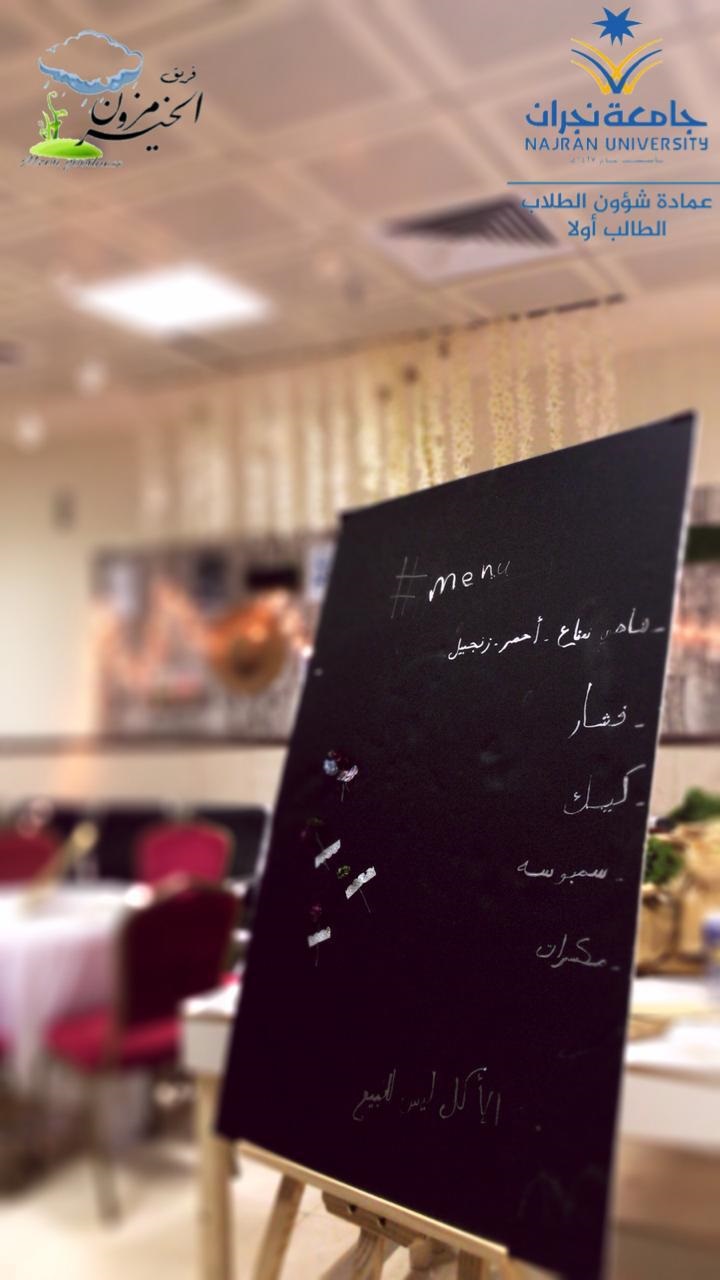 فريق
مزون الخير
جامعة نجران
NAJRAN UNIVERSITY
عمادة شؤون الطلاب
الطالب أولا
#menu
- شاهي نعناع - أحمر - زنجبيل
- فشار
- كيك
- سمبوسه
- مكسرات
الأكل ليس للبيع